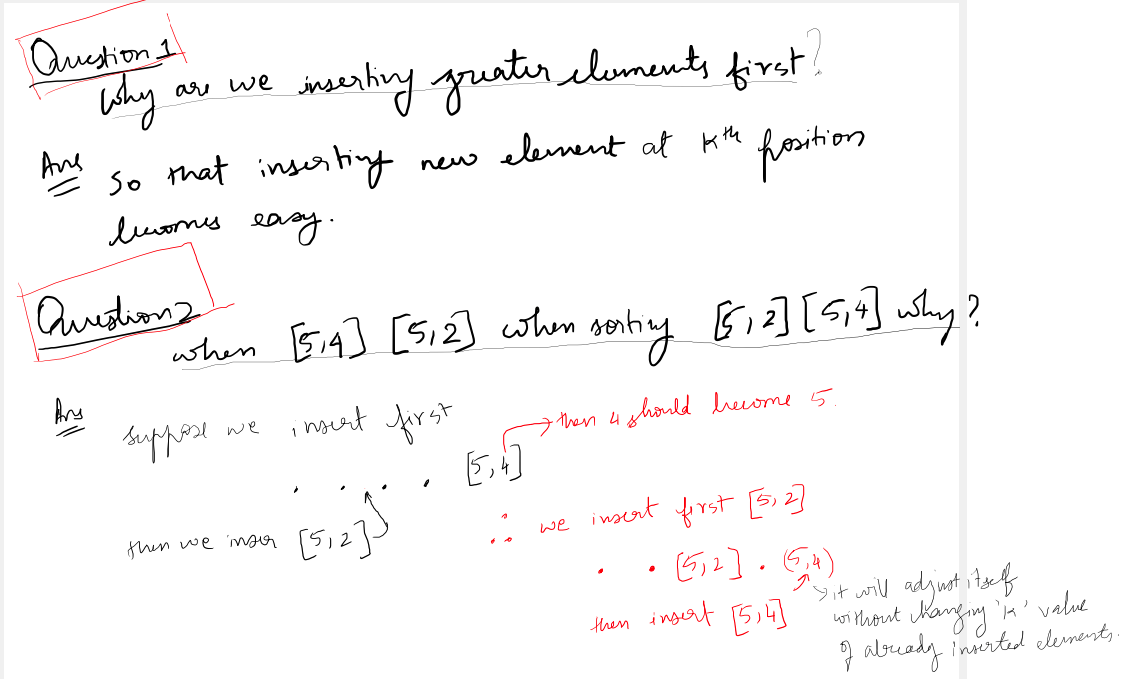 Question 1
Why are we inserting greater elements first?
Ans
So that inserting new element at Kth position
becomes easy.
Question 2
when [5,4] [5,2] when sorting [5,2] [5,4] why?
Ans
suppose we insert first
then 4 should become 5.
. . . . [5,4]
then we inser [5,2]
∴ we insert first [5,2]
. . [5,2] . (5,4)
then insert [5,4]
it will adjust itself
without changing 'K' value
of already inserted elements.